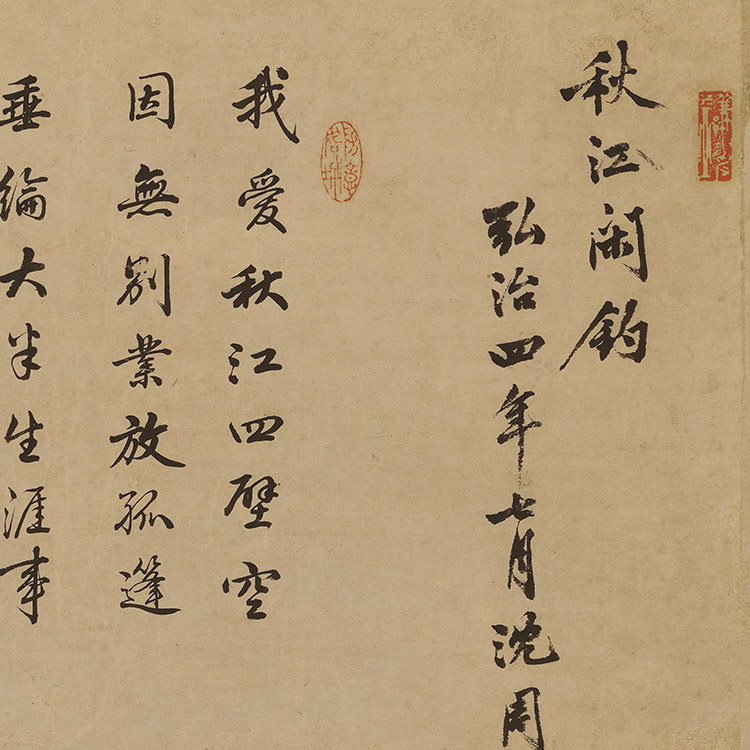 秋江閑釣
弘治四年七月沈周
我愛秋江四壁空
因無別業放孤篷
垂綸大半生涯事